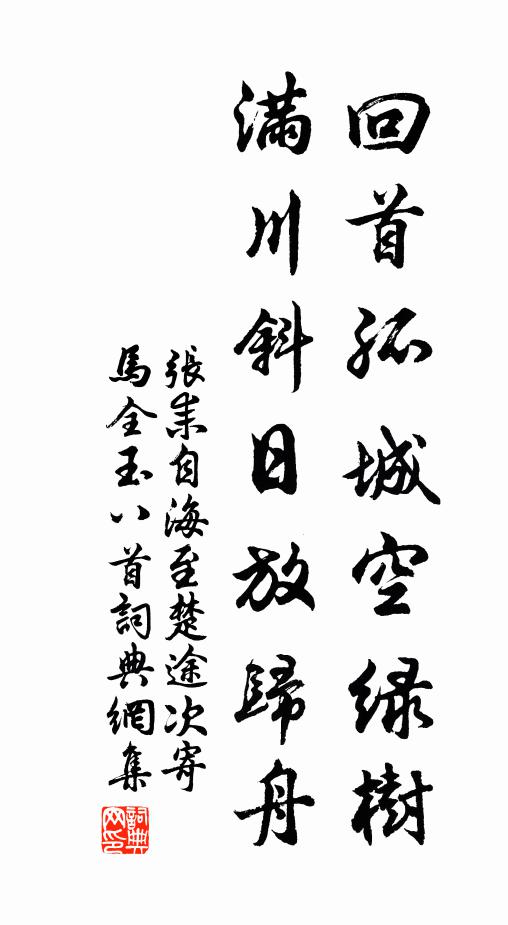 回首孤城空綠樹
滿川斜日放歸舟
張耒自海至楚途次寄
馬全玉八首詞典網集
詞典
网印